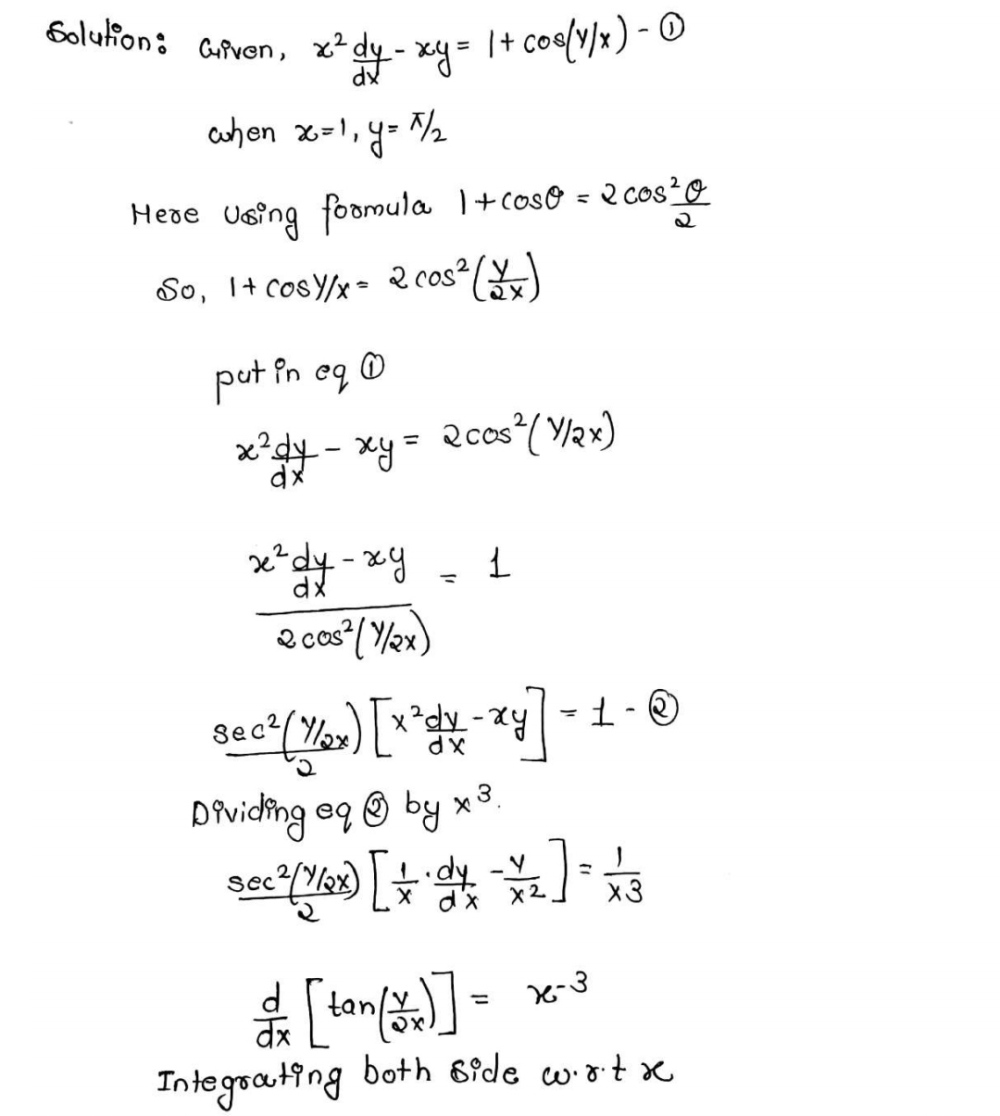 Solution: Given, x² dy/dx - xy = 1 + cos(y/x) - ①
when x=1, y= π/2
Here Using formula 1+cosθ = 2 cos² θ/2
So, 1+ cos y/x = 2 cos² (y/2x)
put in eq ①
x² dy/dx - xy = 2cos² (y/2x)
(x² dy/dx - xy) / (2 cos² (y/2x)) = 1
sec² (y/2x) / 2 [x² dy/dx - xy] = 1 - ②
Dividing eq ② by x³.
sec² (y/2x) / 2 [1/x · dy/dx - y/x²] = 1/x3
d/dx [tan (y/2x)] = x-3
Integrating both side w.r.t x